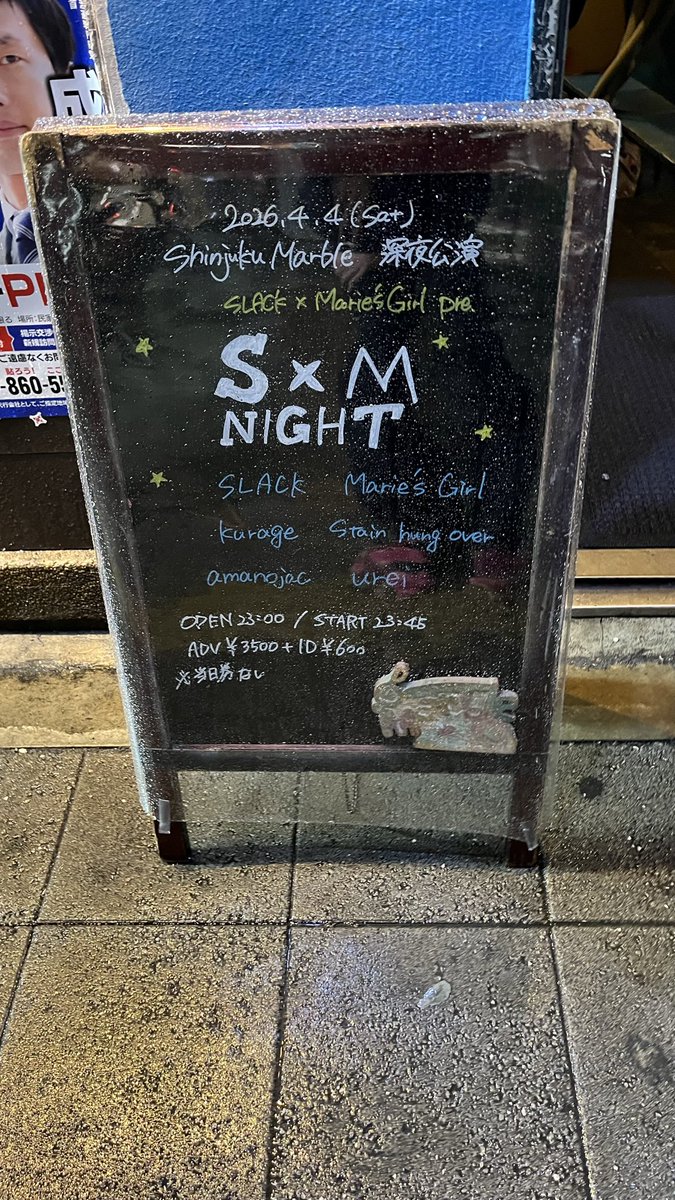 2026.4.4(Sat)
Shinjuku Marble 深夜公演
SLACK × Marie's Girl pre.
S×M
NIGHT
SLACK Marie's Girl
kurage Stain hung over
amanojac urei
OPEN 23:00 / START 23:45
ADV ¥3500+1D ¥600
※当日券なし
成
掲示交渉
新規訪問
ご遠慮なくお問
貼ろう!
-860-5